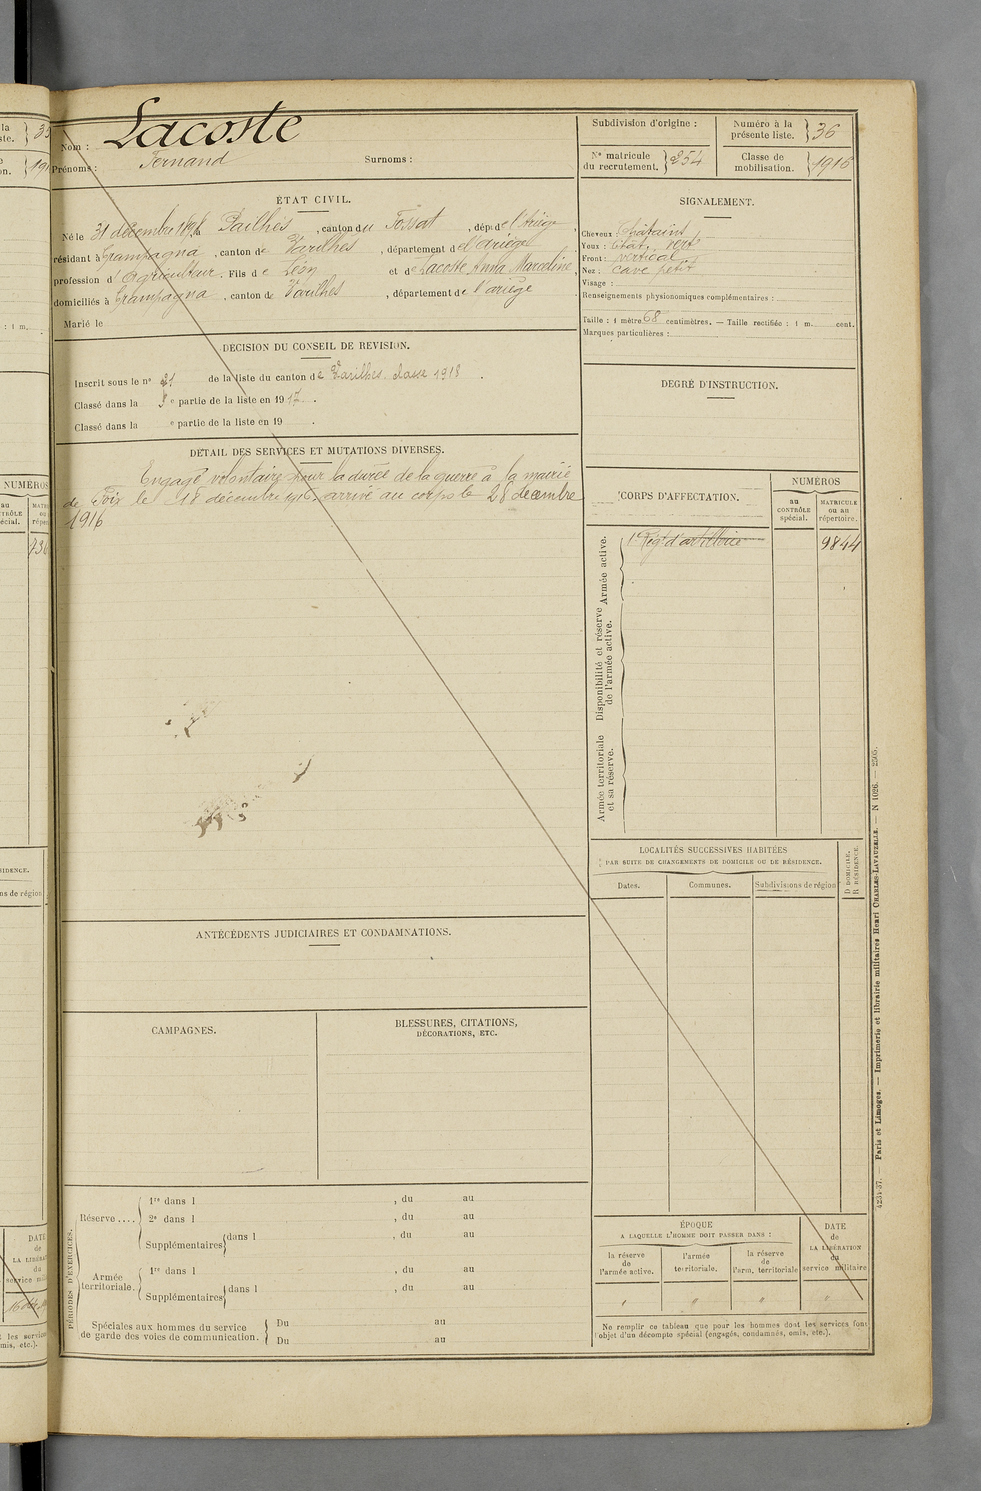 Nom : Lacoste
Prénoms : Fernand
Surnoms :
Subdivision d'origine :
Numéro à la présente liste. } 36
N° matricule du recrutement. } 254
Classe de mobilisation. } 1916
ÉTAT CIVIL.
Né le 31 décembre 1898 Pailhès , canton du Fossat , dépt de l'Ariège ,
résidant à Crampagna , canton de Varilhes , département de l'ariège
profession d'agriculteur . Fils de Léon et de Lacoste Anna Marceline
domiciliés à Crampagna , canton de Varilhes , département de l'ariège
Marié le
SIGNALEMENT.
Cheveux Châtains
Yeux : chat. vert
Front : vertical
Nez : cave petit
Visage :
Renseignements physionomiques complémentaires :
Taille : 1 mètre 68 centimètres. — Taille rectifiée : 1 m. cent.
Marques particulières :
DÉCISION DU CONSEIL DE REVISION.
Inscrit sous le n° 21 de la liste du canton de Varilhes classe 1918 .
Classé dans la 5e partie de la liste en 1917 .
Classé dans la e partie de la liste en 19 .
DEGRÉ D'INSTRUCTION.
DÉTAIL DES SERVICES ET MUTATIONS DIVERSES.
Engagé volontaire pour la durée de la guerre à la mairie
de Foix le 18 décembre 1916, arrivé au corps le 28 décembre
1916
CORPS D'AFFECTATION.
NUMÉROS
au CONTRÔLE spécial.
MATRICULE ou au répertoire.
Armée active.
1 Régt d'artillerie
9844
Disponibilité et réserve de l'armée active.
Armée territoriale et sa réserve.
LOCALITÉS SUCCESSIVES HABITÉES
PAR SUITE DE CHANGEMENTS DE DOMICILE OU DE RÉSIDENCE.
Dates.
Communes.
Subdivisions de région
D DOMICILE.
R RÉSIDENCE.
ANTÉCÉDENTS JUDICIAIRES ET CONDAMNATIONS.
CAMPAGNES.
BLESSURES, CITATIONS,
DÉCORATIONS, ETC.
PÉRIODES D'EXERCICES.
Réserve ....
1re dans l , du au
2e dans l , du au
Supplémentaires { dans l , du au
Armée territoriale.
1re dans l , du au
Supplémentaires { dans l , du au
Spéciales aux hommes du service
de garde des voies de communication.
Du au
Du au
ÉPOQUE
A LAQUELLE L'HOMME DOIT PASSER DANS :
la réserve de l'armée active.
l'armée territoriale.
la réserve de l'arm. territoriale
DATE de LA LIBÉRATION du service militaire
" " " "
Ne remplir ce tableau que pour les hommes dont les services font
l'objet d'un décompte spécial (engagés, condamnés, omis, etc.).
4231-37. — Paris et Limoges. — Imprimerie et librairie militaires Henri CHARLES-LAVAUZELLE. — N 1026. — 2505.